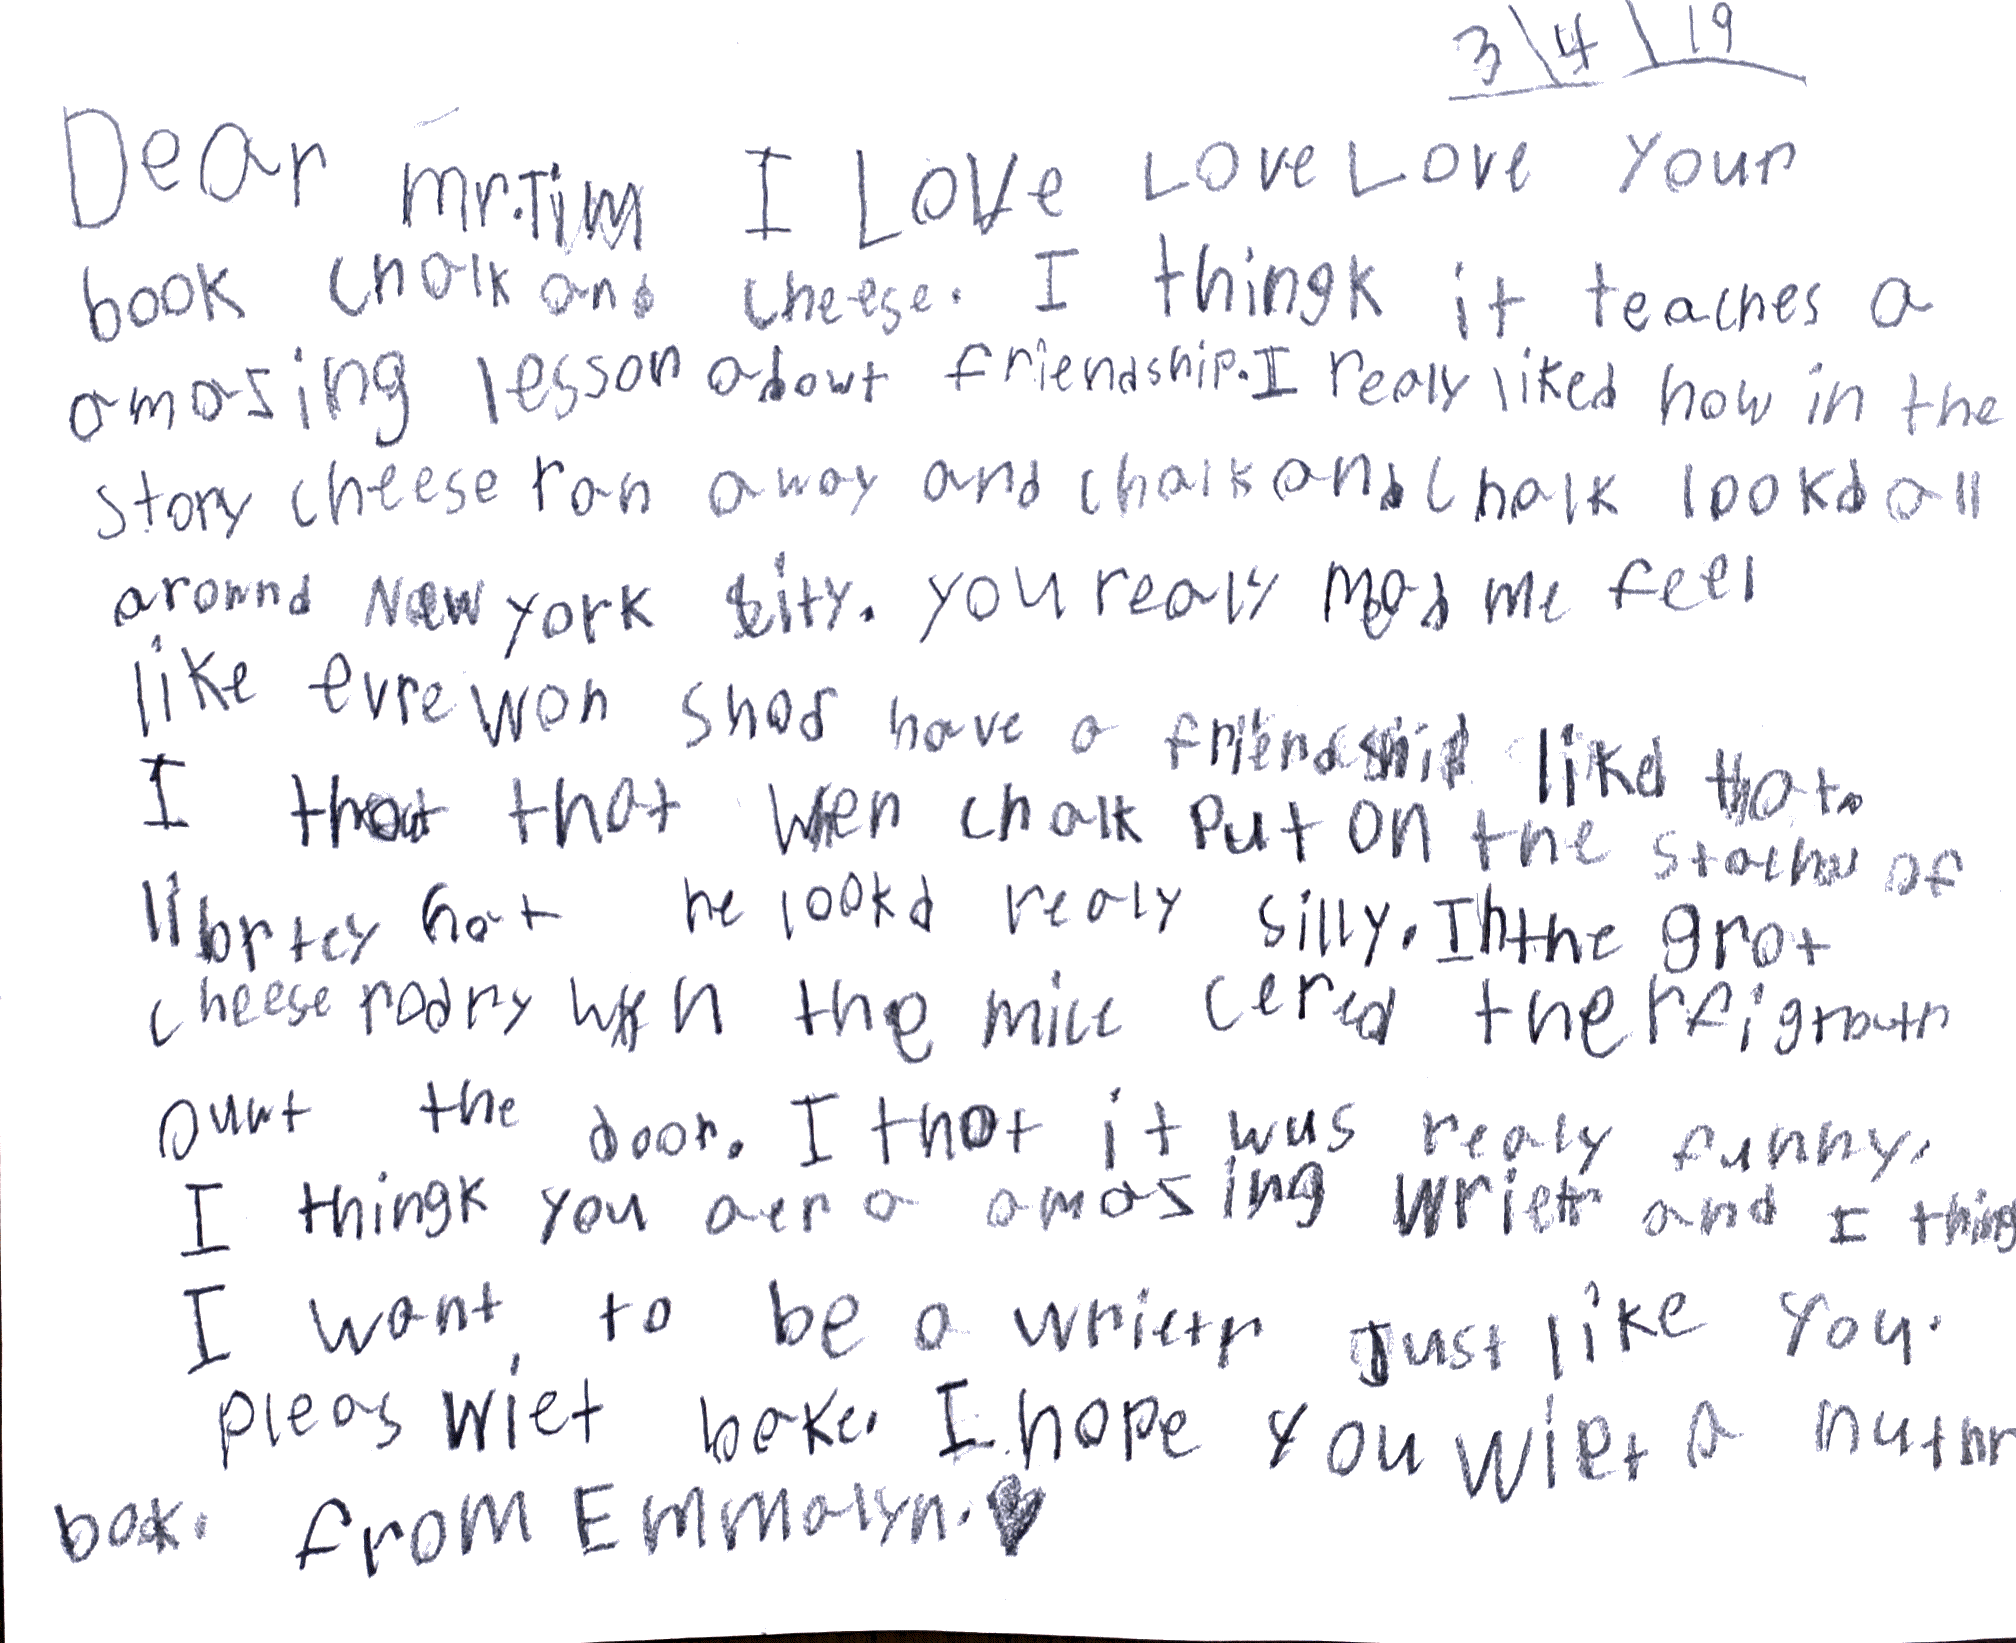 3\4\19
Dear Mr.Tim I Love Love Love your
book chalk and cheese. I thingk it teaches a
amasing lesson abowt friendship. I realy liked how in the
story cheese ran away and chalk and chalk lookd all
arownd New york sity. you realy mad me feel
like evre won shod have a friendship likd that.
I thot that when chalk put on the stachw of
librtey hat he lookd realy silly. In the grat
cheese rodry when the mice cered the rfigrautr
ouwt the door. I thot it wus realy funny.
I thingk you aer a amasing wrietr and I thing
I want to be a wrietr Just like you.
pleas wiet bake. I hope you wiet a nuthr
bok. from Emmalyn.